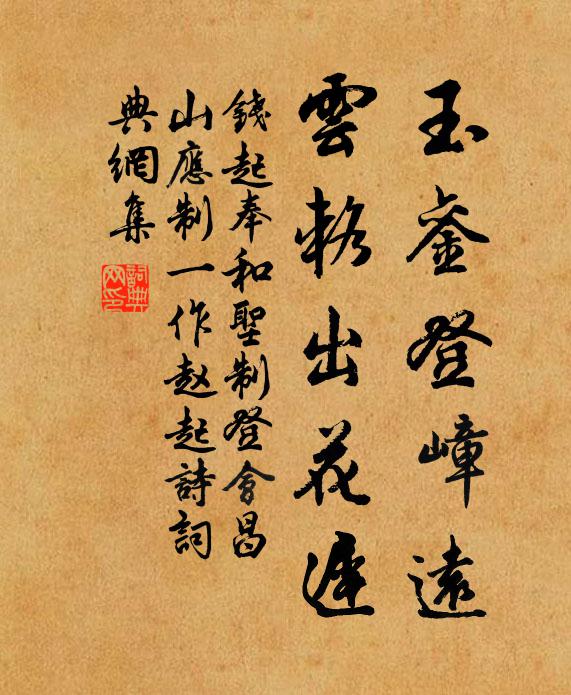 玉銮登嶂遠
雲輅出花遲
錢起奉和聖制登會昌
山應制一作赵起詩詞
典網集
詞典网印